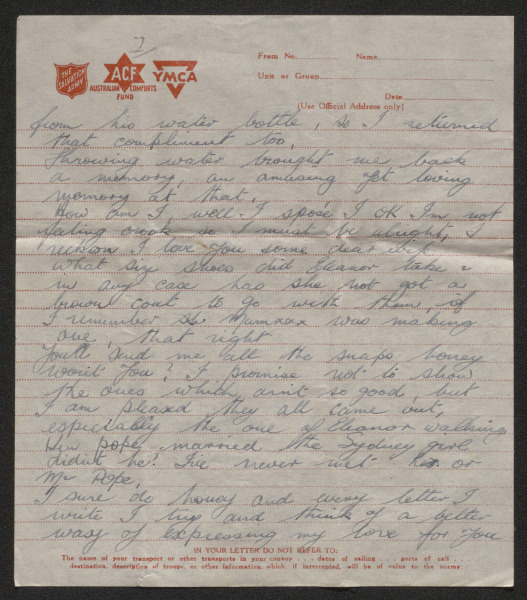 7
THE SALVATION ARMY
ACF
AUSTRALIAN COMFORTS FUND
YMCA
From No. Name
Unit or Group
Date
(Use Official Address only)
from his water bottle, so I returned
that compliment too,
throwing water brought me back
a memory, an amusing yet loving
memory at that.
How am I, well I spose I OK I'm not
feeling crook so I must be alright, I
reckon I love you some dear
What size shoes did Eleanor take &
in any case has she not got a
brown coat to go with them, if
I remember Mumxax was making
one, that right
You'll send me all the snaps honey
won't you? I promise not to show
the ones which aint so good, but
I am pleased they all came out,
especially the one of Eleanor walking
pope married the Sydney girl
didn't he! I've never met her or
Mr Pope,
I sure do honey and every letter I
write I try and think of a better
way of expressing my love for you
IN YOUR LETTER DO NOT REFER TO:
The name of your transport or other transports in your convoy . . . dates of sailing . . . ports of call . . .
destination, description of troops, or other information, which, if intercepted, will be of value to the enemy.